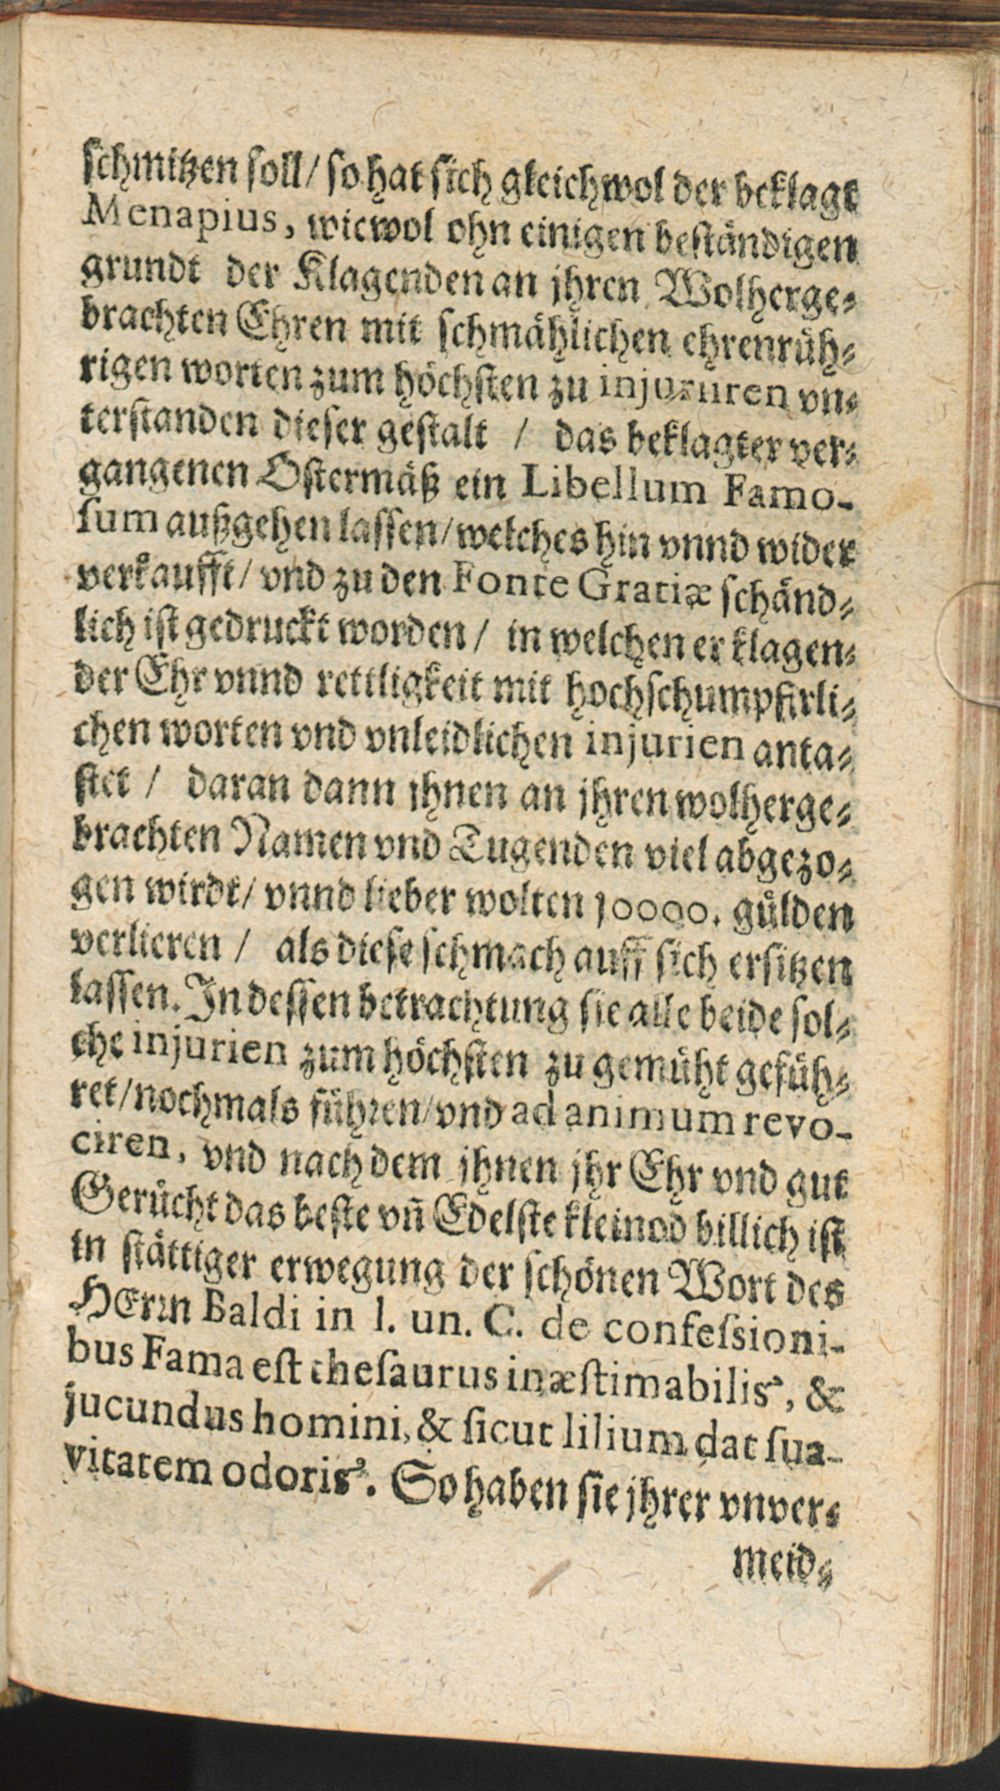 schmitzen soll/ so hat sich gleichwol der beklagt
Menapius, wiewol ohn einigen beständigen
grundt der Klagenden an jhren Wolherge⸗
brachten Ehren mit schmählichen ehrenrüh⸗
rigen worten zum höchsten zu injuriiren vn⸗
terstanden dieser gestalt / das beklagter ver⸗
gangenen Ostermäß ein Libellum Famo-
ſum außgehen lassen/ welches hin vnnd wider
verkaufft/ vnd zu den Fonte Gratiæ schänd⸗
lich ist gedruckt worden / in welchen er klagen⸗
der Ehr vnnd rettligkeit mit hochschumpfirli⸗
chen worten vnd vnleidlichen injurien anta⸗
stet / daran dann jhnen an jhren wolherge⸗
brachten Namen vnd Tugenden viel abgezo⸗
gen wirdt/ vnnd lieber wolten 10000. gülden
verlieren / als diese schmach auff sich ersitzen
lassen. In dessen betrachtung sie alle beide sol⸗
che injurien zum höchsten zu gemüht gefüh⸗
ret/ nochmals führen/ vnd ad animum revo-
ciren, vnd nach dem jhnen jhr Ehr vnd gut
Gerücht das beste vñ Edelste kleinod billich ist
in stättiger erwegung der schönen Wort des
HErrn Baldi in l. un. C. de confeſsioni-
bus Fama eſt theſaurus inæſtimabilis, &
jucundus homini, & ſicut lilium dat ſua-
vitatem odoris. So haben sie jhrer vnver⸗
meid⸗